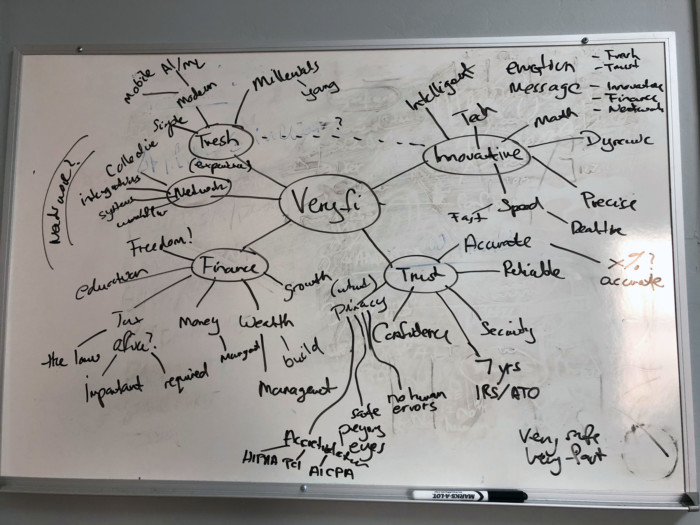 Mobile
AI/ML
Modern
Simple
Fresh
Millenials
young
?
Intelligent
Tech
Math
Dynamic
Innovative
Precise
Speed
Fast
Realtime
emotion
- Fresh
- Trust
message
- Innovative
- Finance
- Network
Needs more?
Collective
integrations
systems
Network
Veryfi
Freedom!
education
Finance
growth
Tax
the law
Important
required
Money
Managed
Wealth
build
Management
Trust
Accurate
x%?
accurate
Reliable
Security
7 yrs
IRS/ATO
Confidence
Privacy
no human
errors
safe
prying
eyes
HIPAA
PCI
AICPA
Very safe
Very fast
MARKS-A-LOT